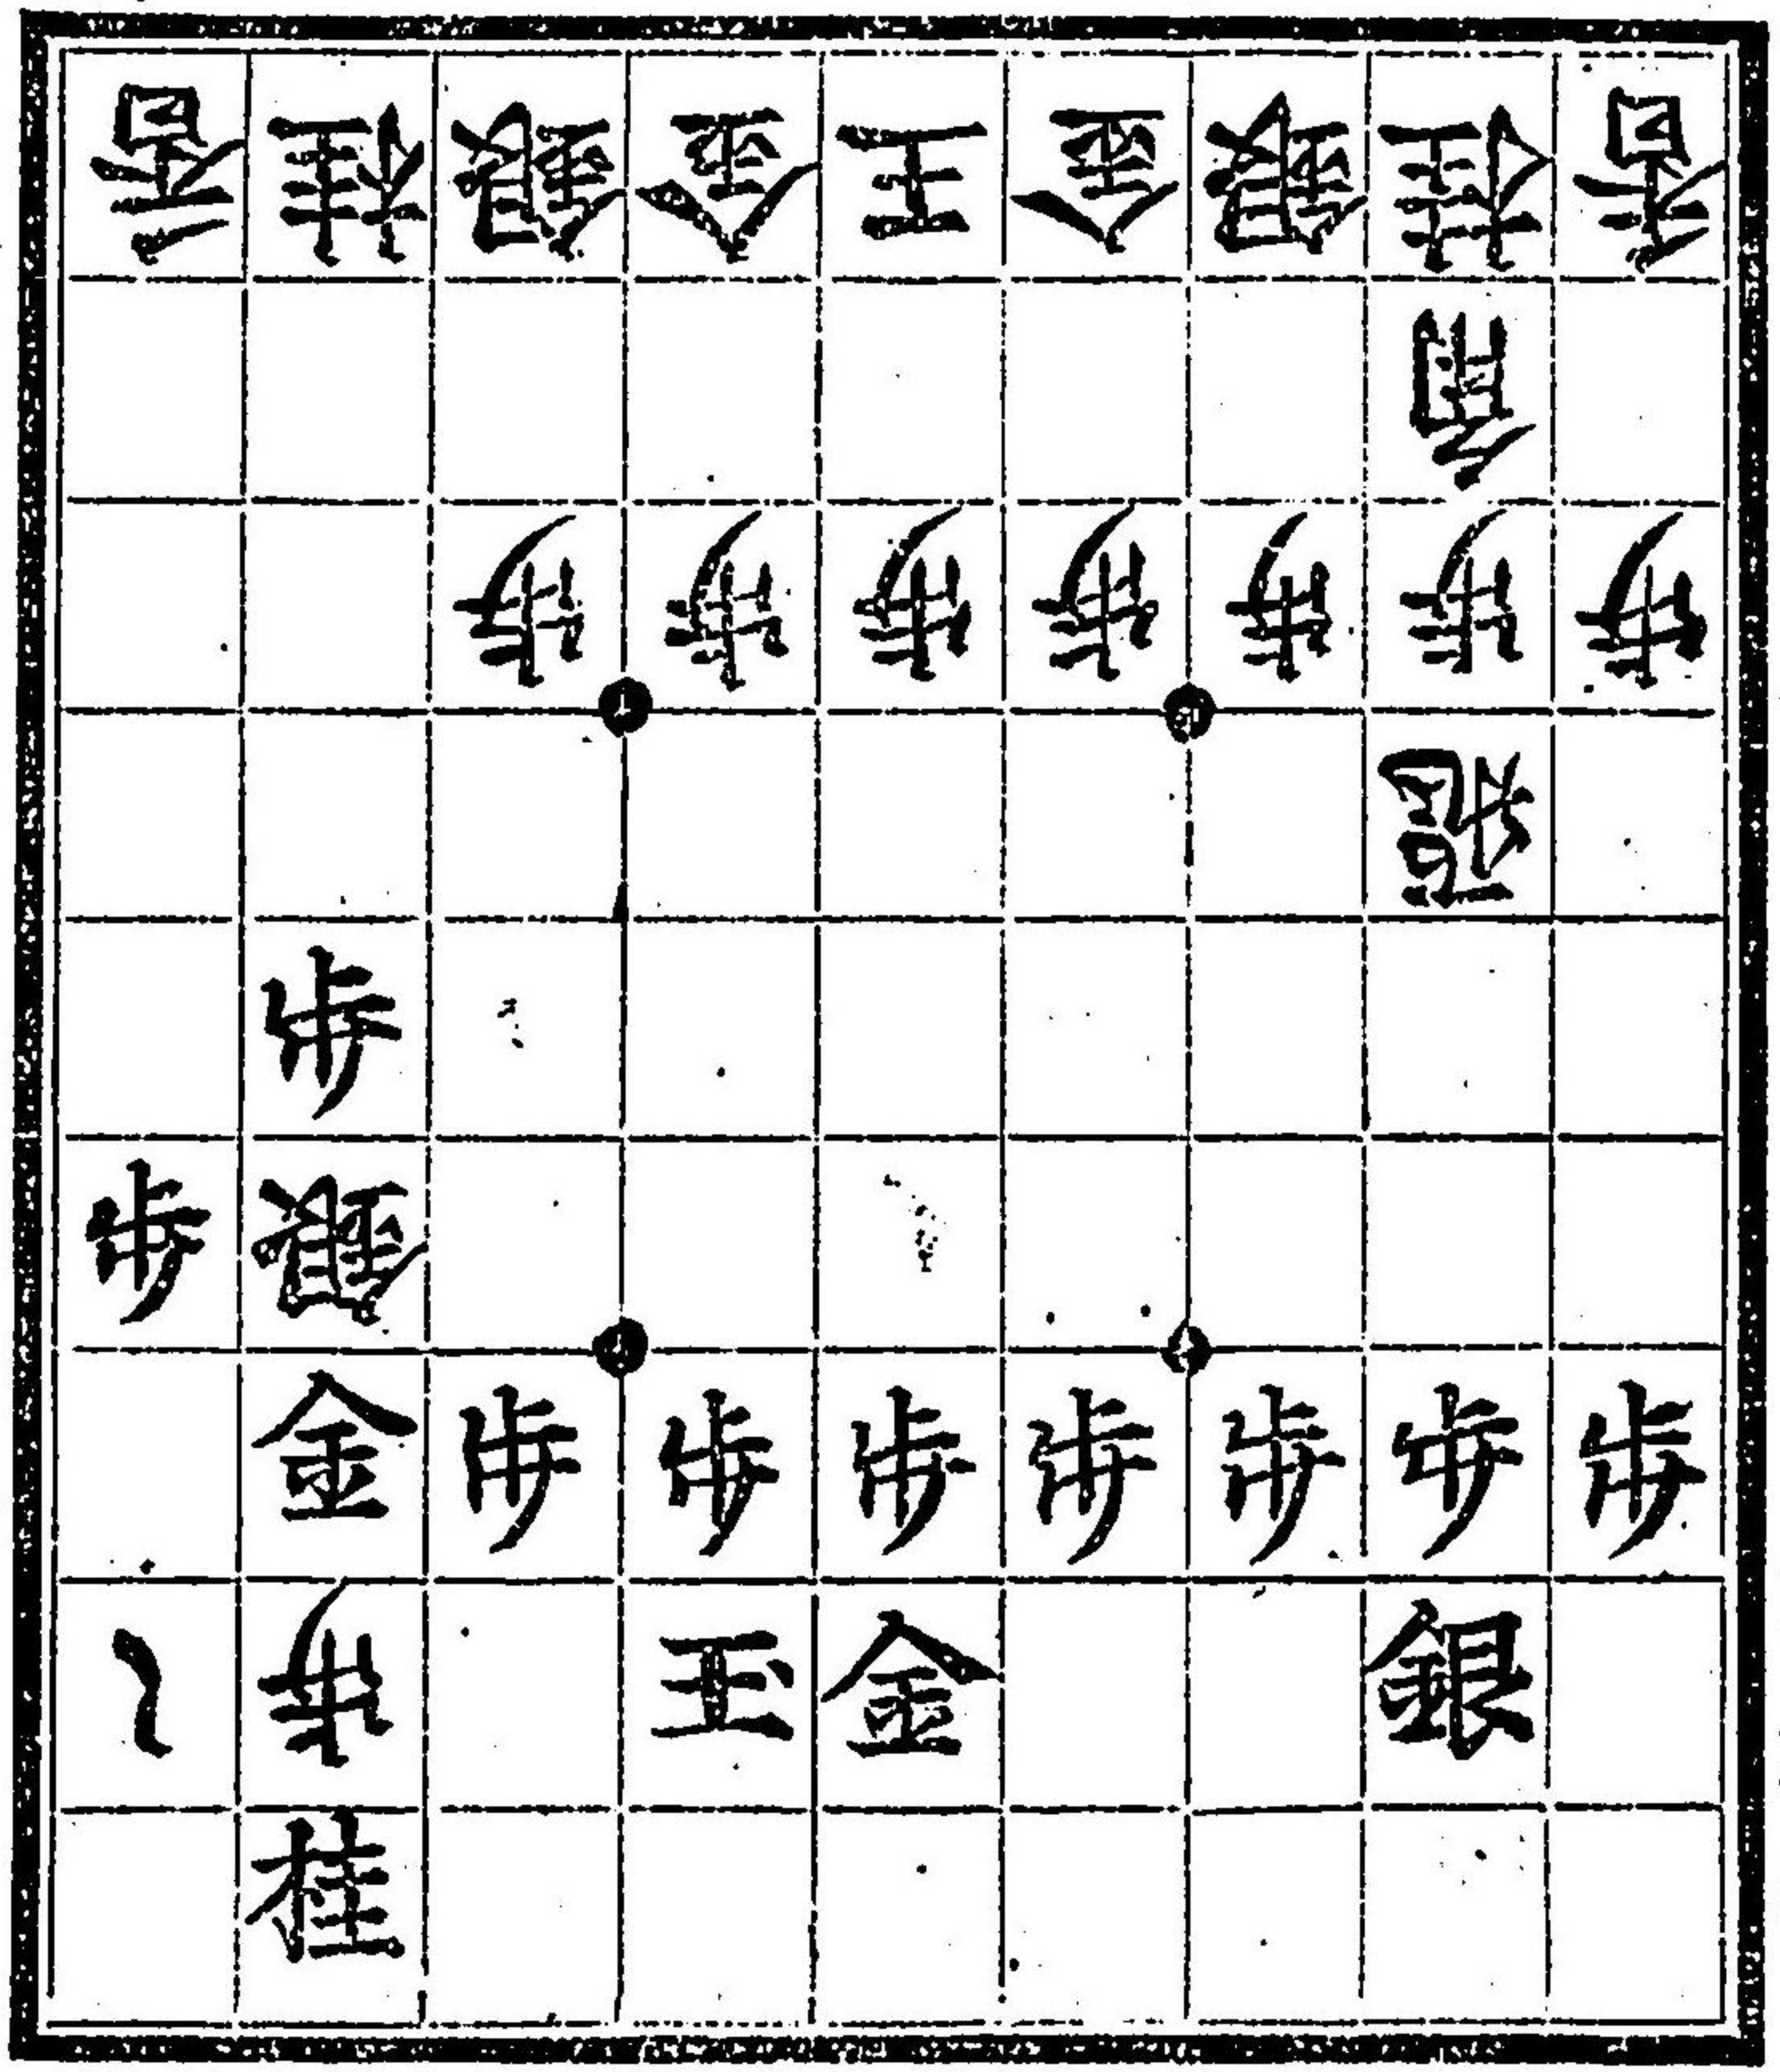 香桂銀金王金銀桂香
角
歩歩歩歩歩歩歩
飛
歩
歩銀
金歩歩歩歩歩歩歩
歩玉金銀
桂